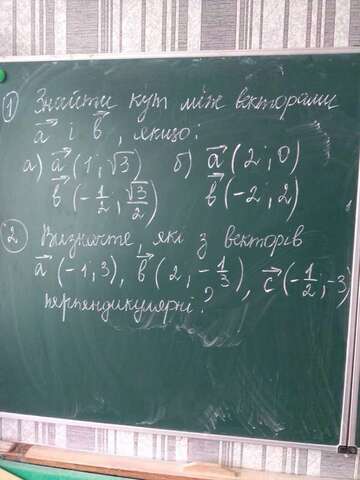 ① Знайти кут між векторами
a⃗ і b⃗, якщо:
а) a⃗ (1; √3) б) a⃗ (2; 0)
b⃗ (-1/2; √3/2) b⃗ (-2; 2)
② Визначте, які з векторів
a⃗ (-1; 3), b⃗ (2; -1/3), c⃗ (-1/2; -3)
перпендикулярні?